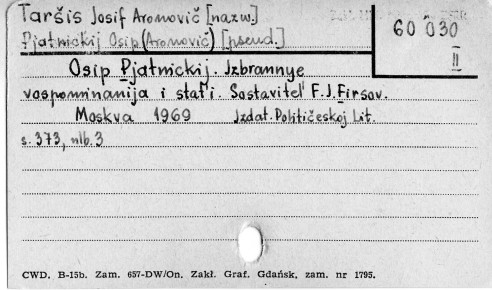 Taršis Josif Aronovič [nazw.]
Pjatnickij Osip (Aronovič) [pseud.]
60 030
II
Osip Pjatnickij. Izbrannye
vospominanija i stat'i. Sostavitel' F.I. Firsov.
Moskva 1969 Izdat. Političeskoj Lit.
s. 373, nlb. 3
CWD. B-15b. Zam. 657-DW/On. Zakł. Graf. Gdańsk, zam. nr 1795.